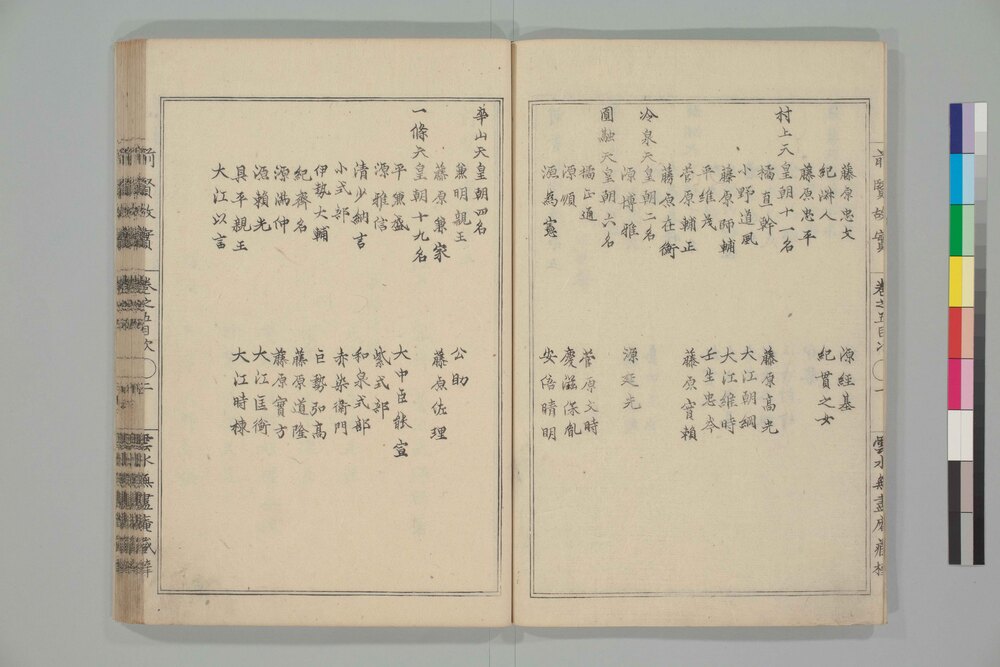 前賢故實 卷之五目次 一 雲水無盡庵藏梓
藤原忠文 源經基
紀淑人 紀貫之女
藤原忠平
村上天皇朝十一名
橘直幹 藤原高光
小野道風 大江朝綱
藤原師輔 大江維時
平維茂 壬生忠岑
菅原輔正 藤原實賴
藤原在衡
冷泉天皇朝二名
源博雅 源延光
圓融天皇朝六名
橘正通 菅原文時
源順 慶滋保胤
源為憲 安倍晴明
華山天皇朝四名
兼明親王 公助
藤原兼家 藤原佐理
一條天皇朝十九名
平兼盛 大中臣能宣
源雅信 紫式部
清少納言 和泉式部
小式部 赤染衛門
伊勢大輔 巨勢弘高
紀齊名 藤原道隆
源滿仲 藤原實方
源賴光 大江匡衡
具平親王 大江時棟
大江以言
前賢故實 卷之五目次 二 雲水無盡庵藏梓